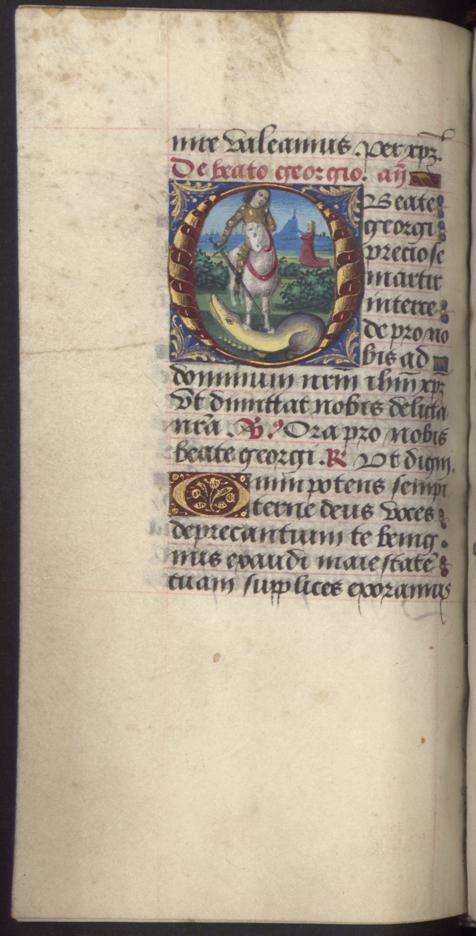 nire valeamus. Per xp̄z.
De beato georgio. añ
O Beate
georgi
preciose
martir
interce
de pro no
bis ad
dominum nr̄m ihm̄ xp̄z
Vt dimittat nobis delicta
nr̄a. V. Ora pro nobis
beate georgi. R. Vt digni.
Omnipotens sempi
terne deus voces
deprecantium te benig
nus exaudi maiestatē
tuam supplices exoramus